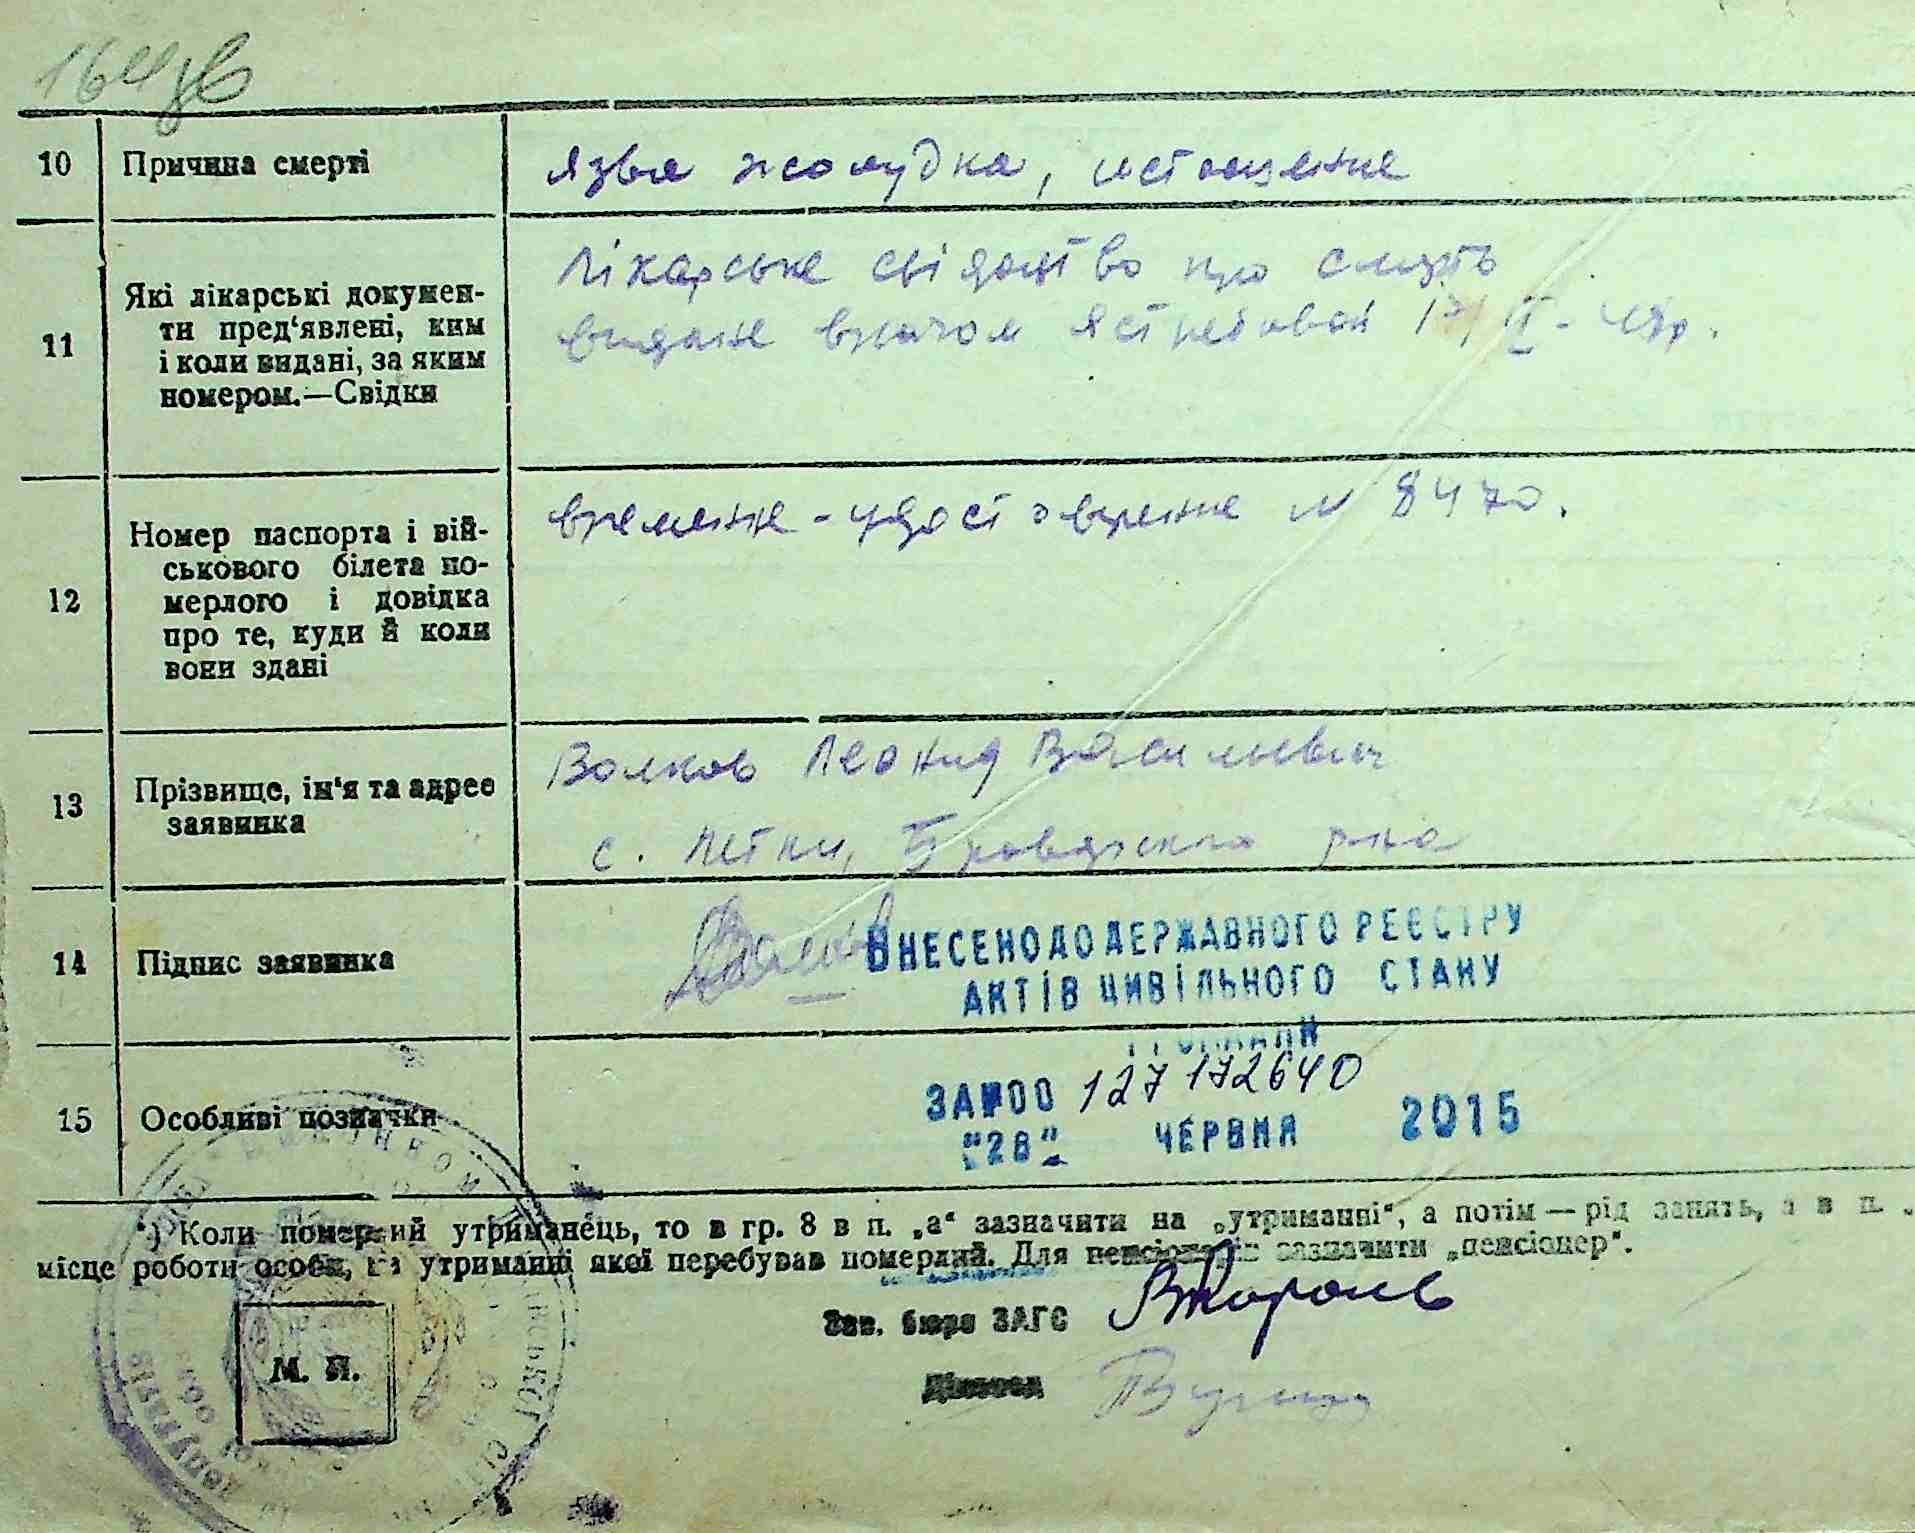 10 Причина смерті язва жолудка, истощение
11 Які лікарські докумен-
ти пред'явлені, ким
і коли видані, за яким
номером.—Свідки
Лікарське свідоцтво про смерть
видане врачом Ястребовой 17/II-48р.
12 Номер паспорта і вій-
ськового білета по-
мерлого і довідка
про те, куди й коли
вони здані
времене-удостоврение № 8470.
13 Прізвище, ім'я та адрес
заявника
Волков Леонид Васильевич
с. Літки, Броварского р-на
14 Підпис заявника
ВНЕСЕНО ДО ДЕРЖАВНОГО РЕЄСТРУ
АКТІВ ЦИВІЛЬНОГО СТАНУ
ГРОМАДЯН
15 Особливі позначки
ЗА №00 127172640
"28" ЧЕРВНЯ 2015
*) Коли померлий утриманець, то в гр. 8 в п. „а“ зазначити на „утриманні“, а потім — рід занять, а в п.
місце роботи особи, на утриманні якої перебував померлий. Для пенсіонерів зазначити „пенсіонер“.
Зав. бюро ЗАГС
М. П.
Діловод